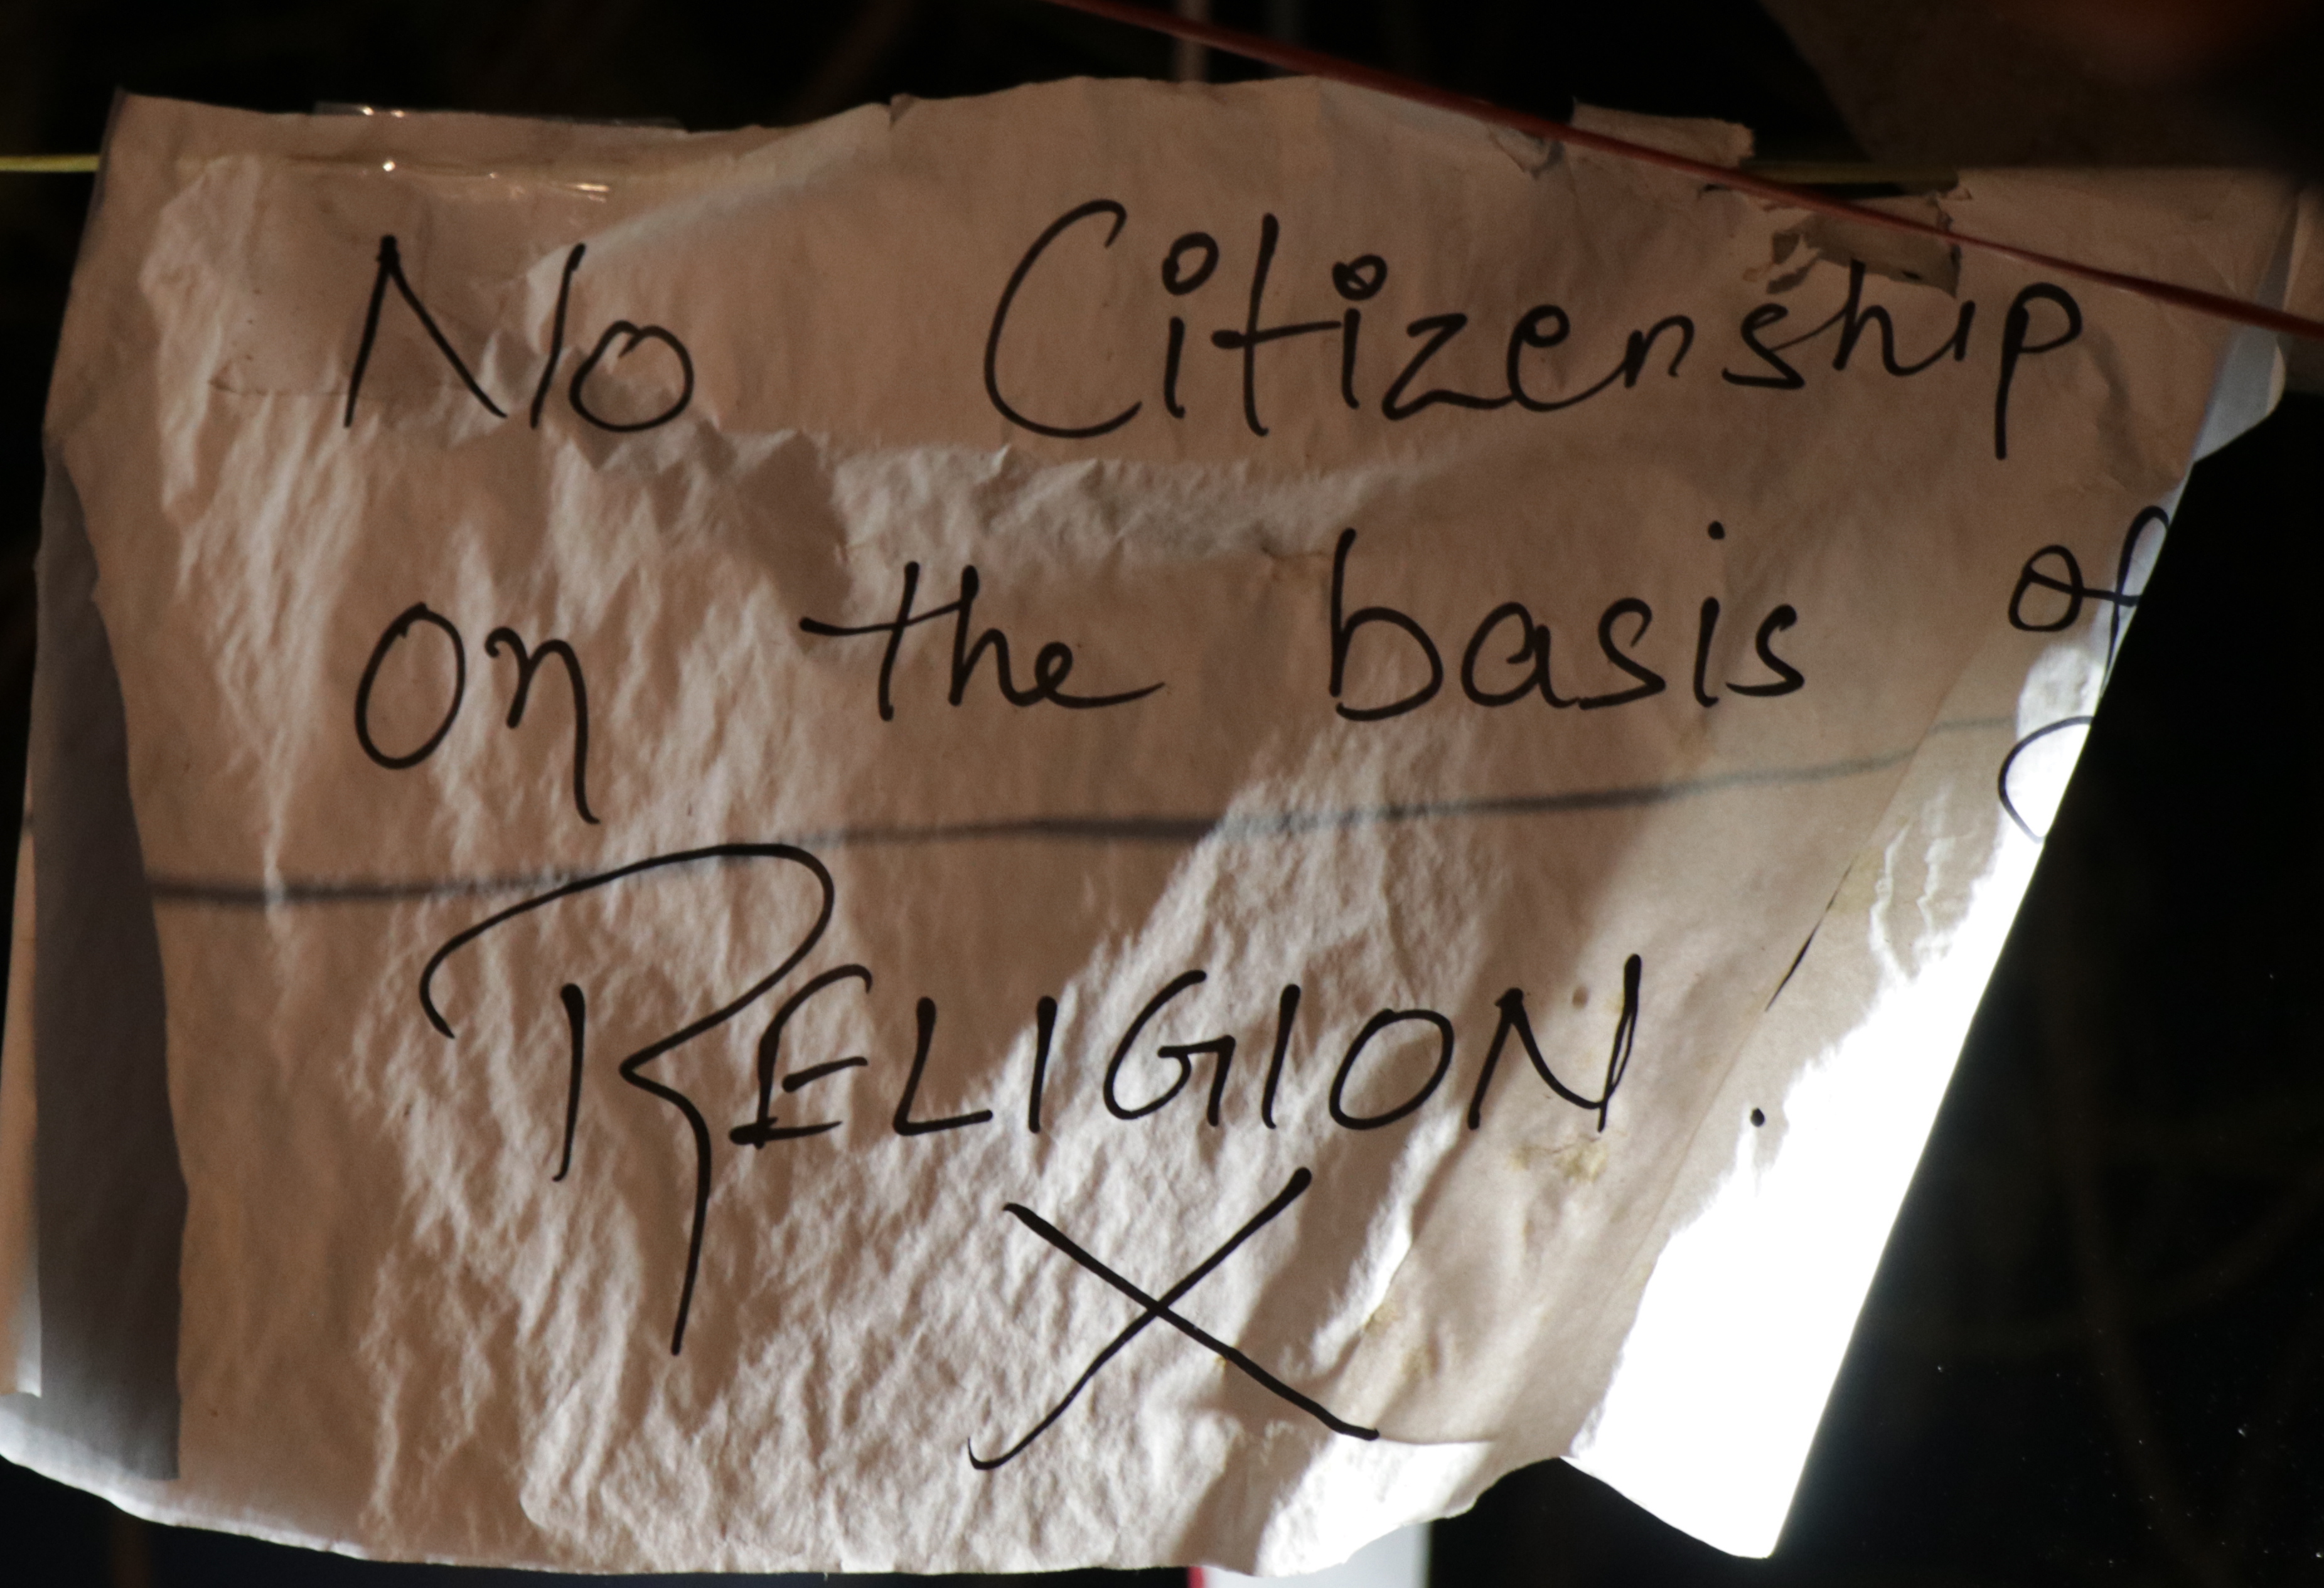 No Citizenship
on the basis of
RELIGION.
X